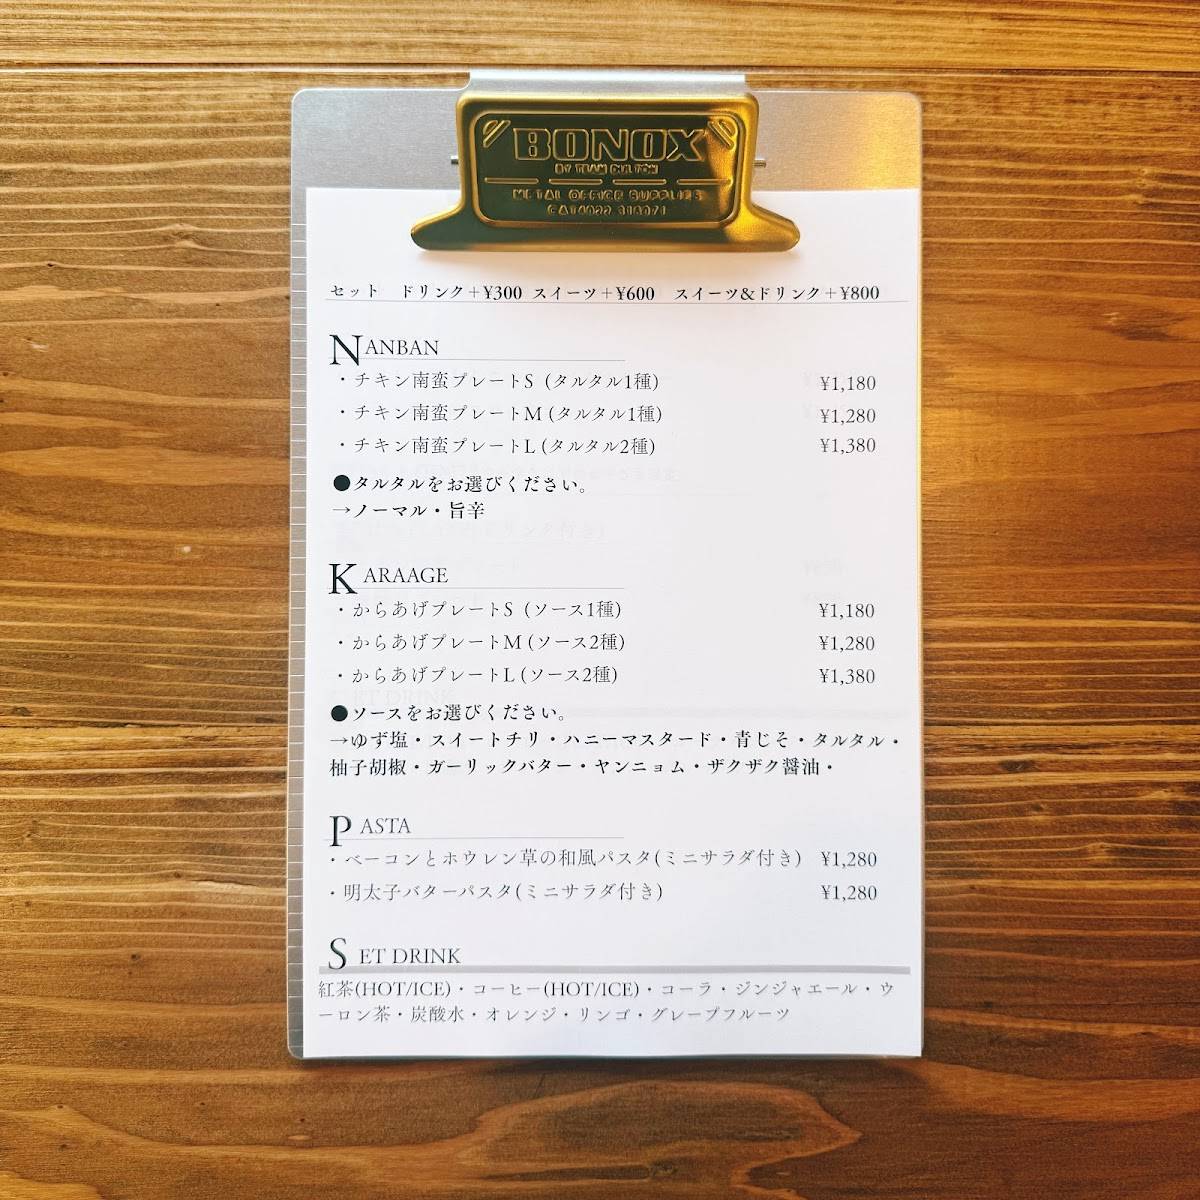 BONOX
BY TEAM DULTON
METAL OFFICE SUPPLIES
セット ドリンク+¥300 スイーツ+¥600 スイーツ&ドリンク+¥800
NANBAN
・チキン南蛮プレートS (タルタル1種) ¥1,180
・チキン南蛮プレートM (タルタル1種) ¥1,280
・チキン南蛮プレートL (タルタル2種) ¥1,380
●タルタルをお選びください。
→ノーマル・旨辛
KARAAGE
・からあげプレートS (ソース1種) ¥1,180
・からあげプレートM (ソース2種) ¥1,280
・からあげプレートL (ソース2種) ¥1,380
●ソースをお選びください。
→ゆず塩・スイートチリ・ハニーマスタード・青じそ・タルタル・
柚子胡椒・ガーリックバター・ヤンニョム・ザクザク醤油・
PASTA
・ベーコンとホウレン草の和風パスタ(ミニサラダ付き) ¥1,280
・明太子バターパスタ(ミニサラダ付き) ¥1,280
SET DRINK
紅茶(HOT/ICE)・コーヒー(HOT/ICE)・コーラ・ジンジャエール・ウ
ーロン茶・炭酸水・オレンジ・リンゴ・グレープフルーツ